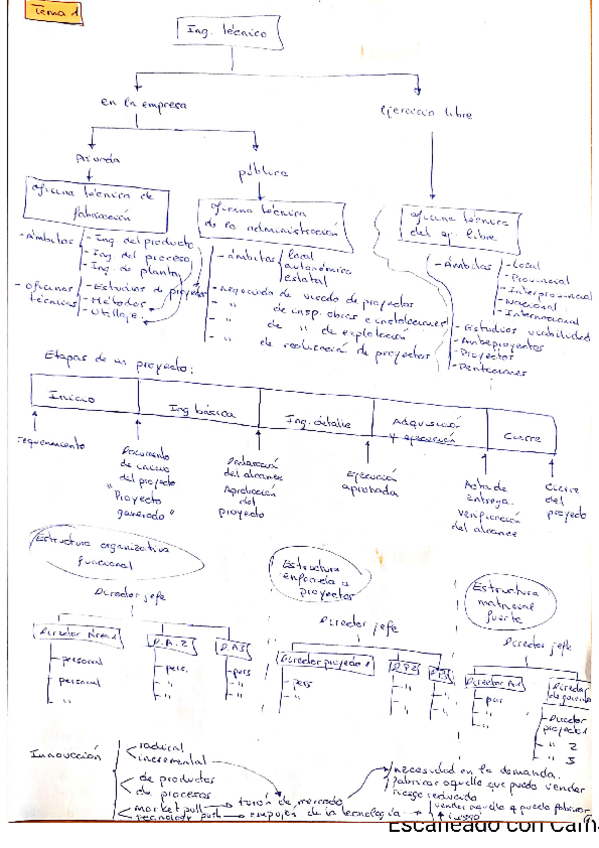 Tema 1
Ing. técnico
en la empresa
ejercicio libre
privada
pública
oficina técnica de fabricación
oficina técnica de la administración
oficina técnica del ej. libre
- Ámbitos
- Ing. del producto
- Ing. del proceso
- Ing. de planta
- oficinas técnicas
- Estudios de proyectos
- Métodos
- Utillaje
- ámbitos
local
autonómico
estatal
- negociado de visado de proyectos
- " de insp. obras e instalaciones
- " de " de explotación
- " de realización de proyectos
- Ámbitos
- Local
- Provincial
- Interprovincial
- Nacional
- Internacional
- Estudios viabilidad
- Anteproyectos
- Proyectos
Etapas de un proyecto:
Inicio
Ing básica
Ing. detalle
Adquisición y ejecución
Cierre
requerimiento
Documento de inicio del proyecto
"Proyecto generado"
Declaración del alcance
Aprobación del proyecto
Ejecución aprobada
Acta de entrega.
verificación del alcance
Cierre del proyecto
Estructura organizativa funcional
Director jefe
Director Área 1
D.A.2
D.A3
- personal
- personal
- "
- pers.
- "
- "
- pers
- "
- "
Estructura enfocada a proyectos
Director jefe
Director proyecto 1
D.P.2
D.P.3
- pers
- "
- "
- "
- "
- "
Estructura matricial fuerte
Director jefe
Director A1
- per
- "
- "
Director de
- Director proyecto 1
- " 2
- " 3
Innovación
radical
incremental
de productos
de procesos
market pull → tirón de mercado
technology push → empujón de la tecnología
necesidad en la demanda.
fabricar aquello que puedo vender
riesgo reducido
vender aquello q puedo fabricar
↑ riesgo
Escaneado con Cam